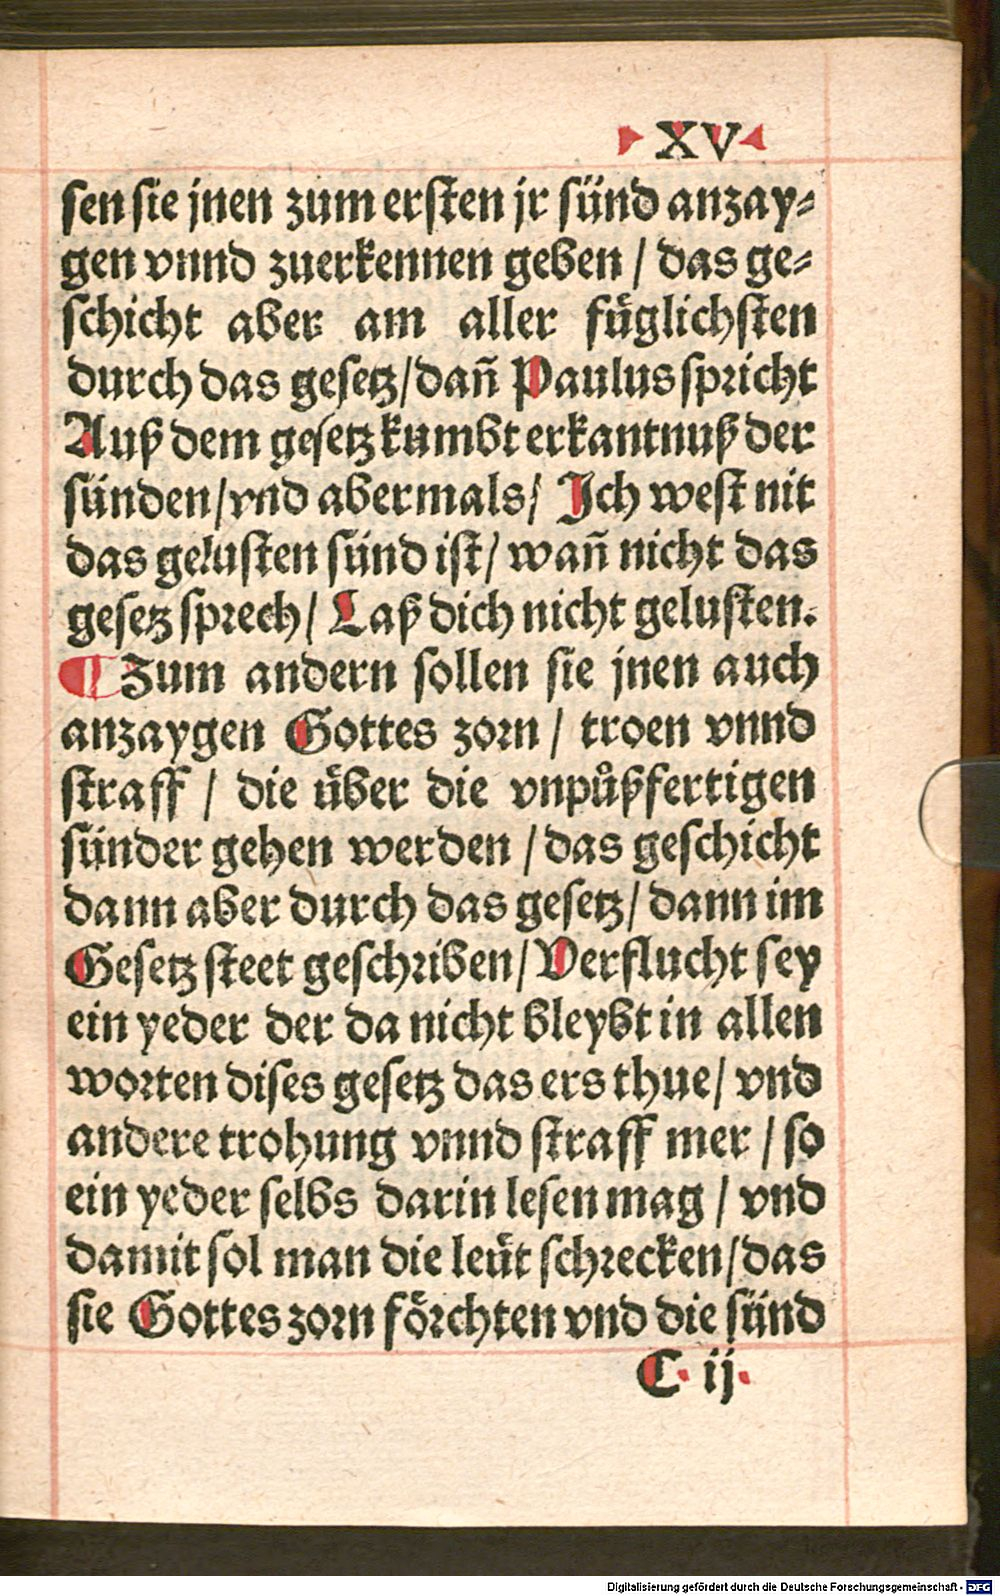 XV
sen sie jnen zum ersten jr sünd anzay⸗
gen vnnd zuerkennen geben / das ge⸗
schicht aber am aller fůglichsten
durch das gesetz / dañ Paulus spricht
Auß dem gesetz kumbt erkantnuß der
sünden / vnd abermals / Jch west nit
das gelusten sünd ist / wañ nicht das
gesetz sprech / Laß dich nicht gelusten.
¶ Zum andern sollen sie jnen auch
anzaygen Gottes zorn / troen vnnd
straff / die über die vnpůßfertigen
sünder gehen werden / das geschicht
dann aber durch das gesetz / dann im
Gesetz steet geschriben / Verflucht sey
ein yeder der da nicht bleybt in allen
worten dises gesetz das ers thue / vnd
andere trohung vnnd straff mer / so
ein yeder selbs darin lesen mag / vnd
damit sol man die leüt schrecken / das
sie Gottes zorn förchten vnd die sünd
C. ij.
Digitalisierung gefördert durch die Deutsche Forschungsgemeinschaft - DFG